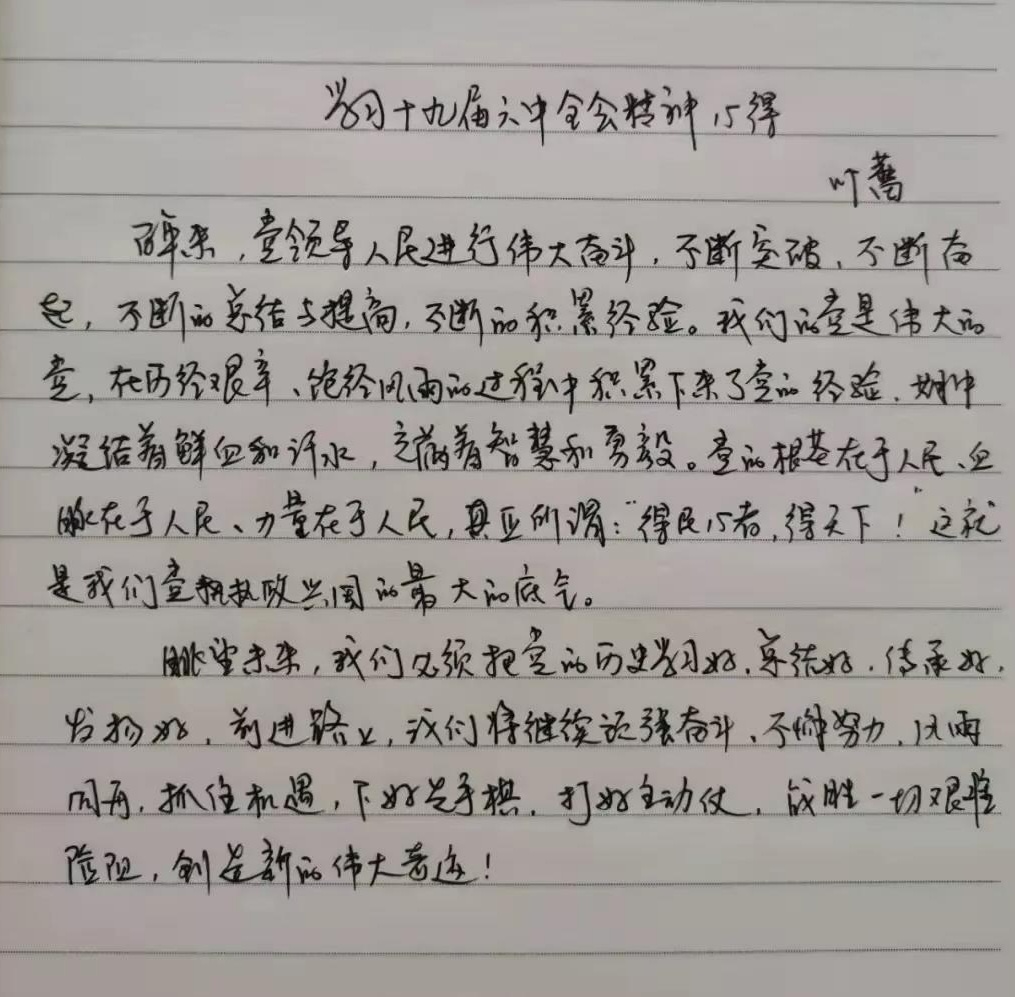 学习十九届六中全会精神心得
叶蔷
百年来，党领导人民进行伟大奋斗，不断突破、不断奋
起，不断的总结与提高，不断的积累经验。我们的党是伟大的
党，在历经艰辛、饱经风雨的过程中积累下来了党的经验，其中
凝结着鲜血和汗水，充满着智慧和勇毅。党的根基在于人民、血
脉在于人民、力量在于人民，真正所谓："得民心者，得天下！"这就
是我们党执政兴国的最大的底气。
眺望未来，我们必须把党的历史学习好，总结好，传承好，
发扬好，前进路上，我们将继续顽强奋斗、不懈努力，风雨
同舟，抓住机遇，下好先手棋，打好主动仗，战胜一切艰难
险阻，创造新的伟大奇迹！